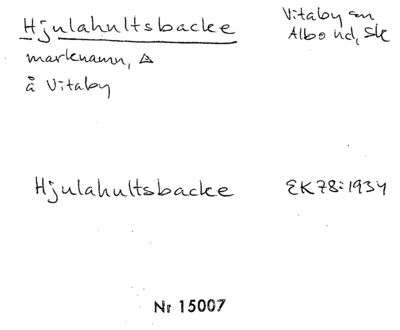 Hjulahultsbacke
Vitaby sn
Albo hd, Sk
marknamn, △
å Vitaby
Hjulahultsbacke
EK78:1934
Nr 15007